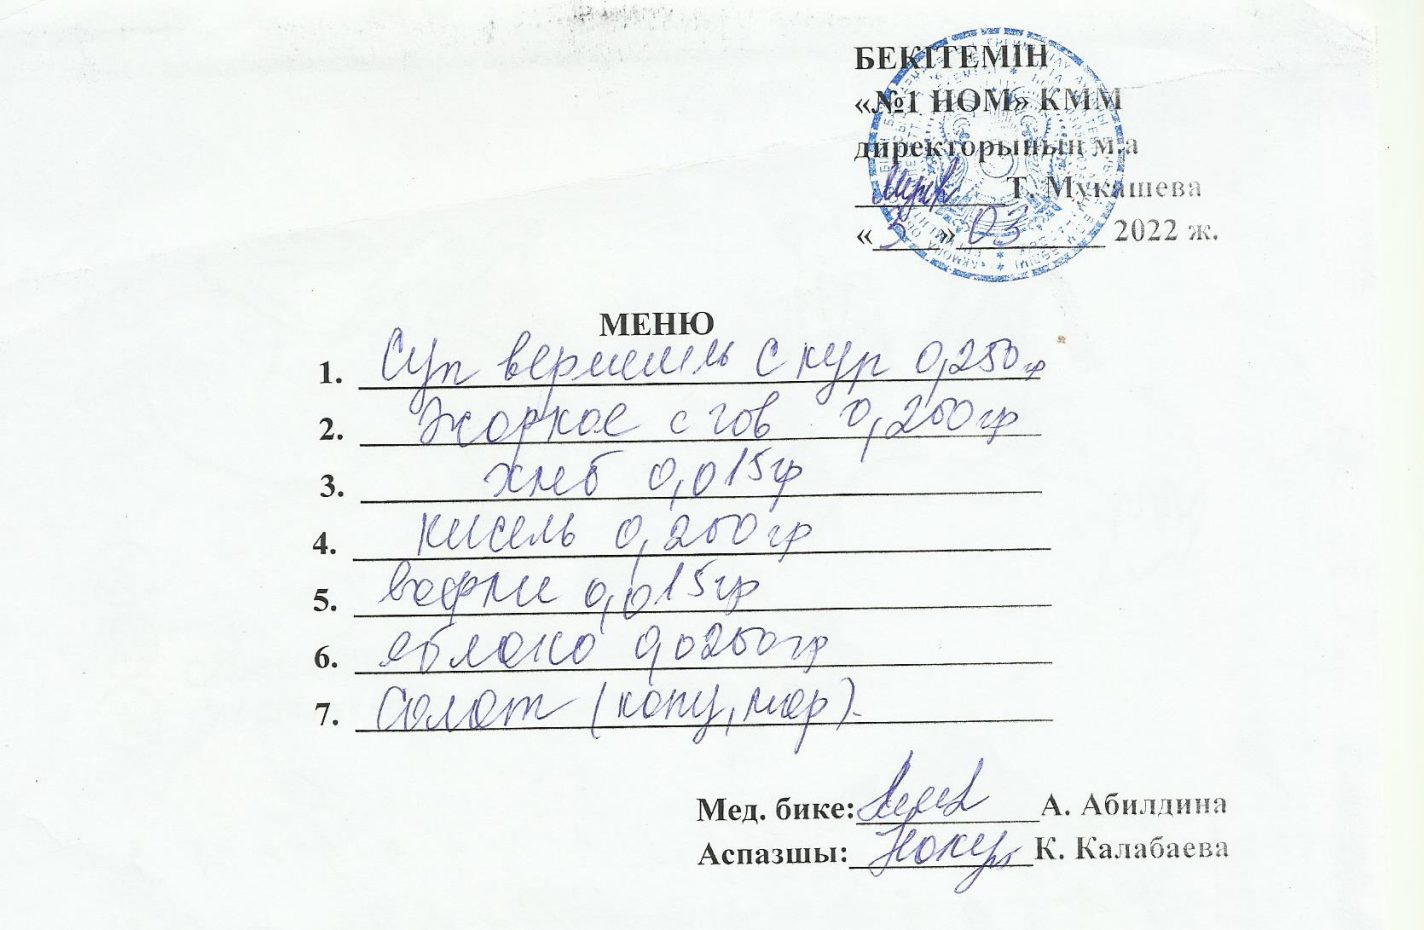 БЕКІТЕМІН
«№1 НОМ» КММ
директорының м.а
Т. Мукашева
«5» 03 2022 ж.
МЕНЮ
1. Суп вермишль с кур 0,250гр
2. Жаркое с гов 0,200гр
3. хлеб 0,015гр
4. кисель 0,200гр
5. вафли 0,015гр
6. яблоко 0,0200гр
7. Салат (капу, мор).
Мед. бике: А. Абилдина
Аспазшы: К. Калабаева